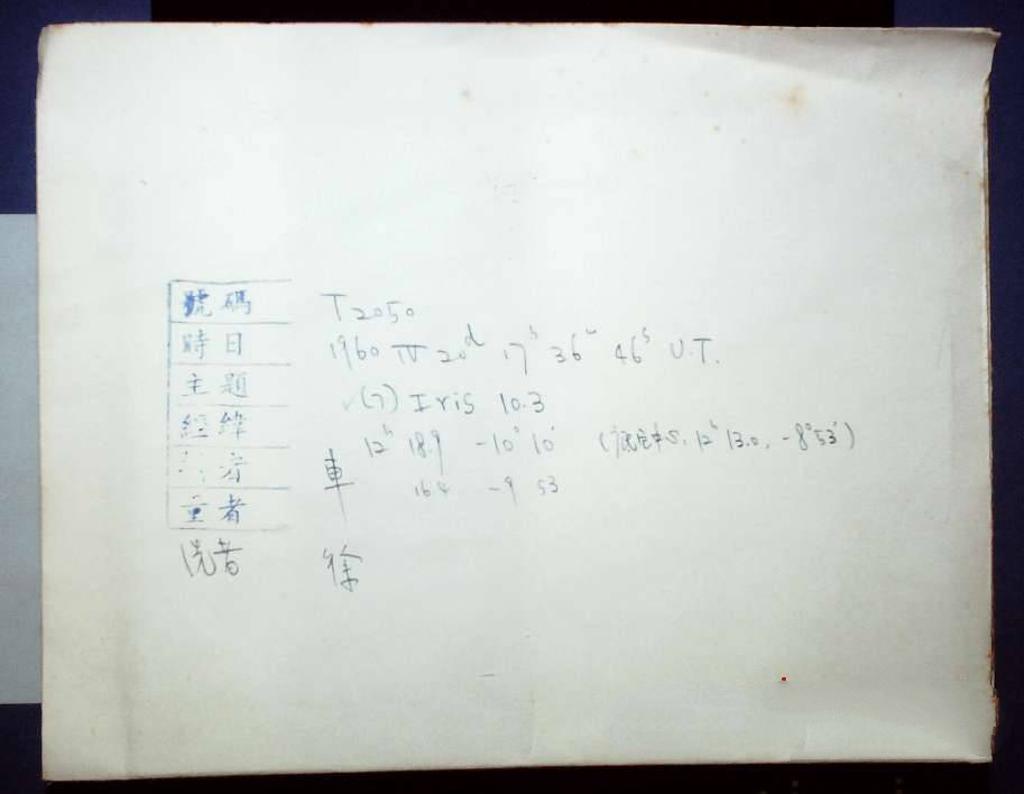 號碼 T2050
時日 1960 IV 20d 17h 36m 46s U.T.
主題 √(7) Iris 10.3
經緯 12h 18.9 -10° 10' 12h 13.0, -8°53')
者 車 16.4 -9 53
者
洗者 徐